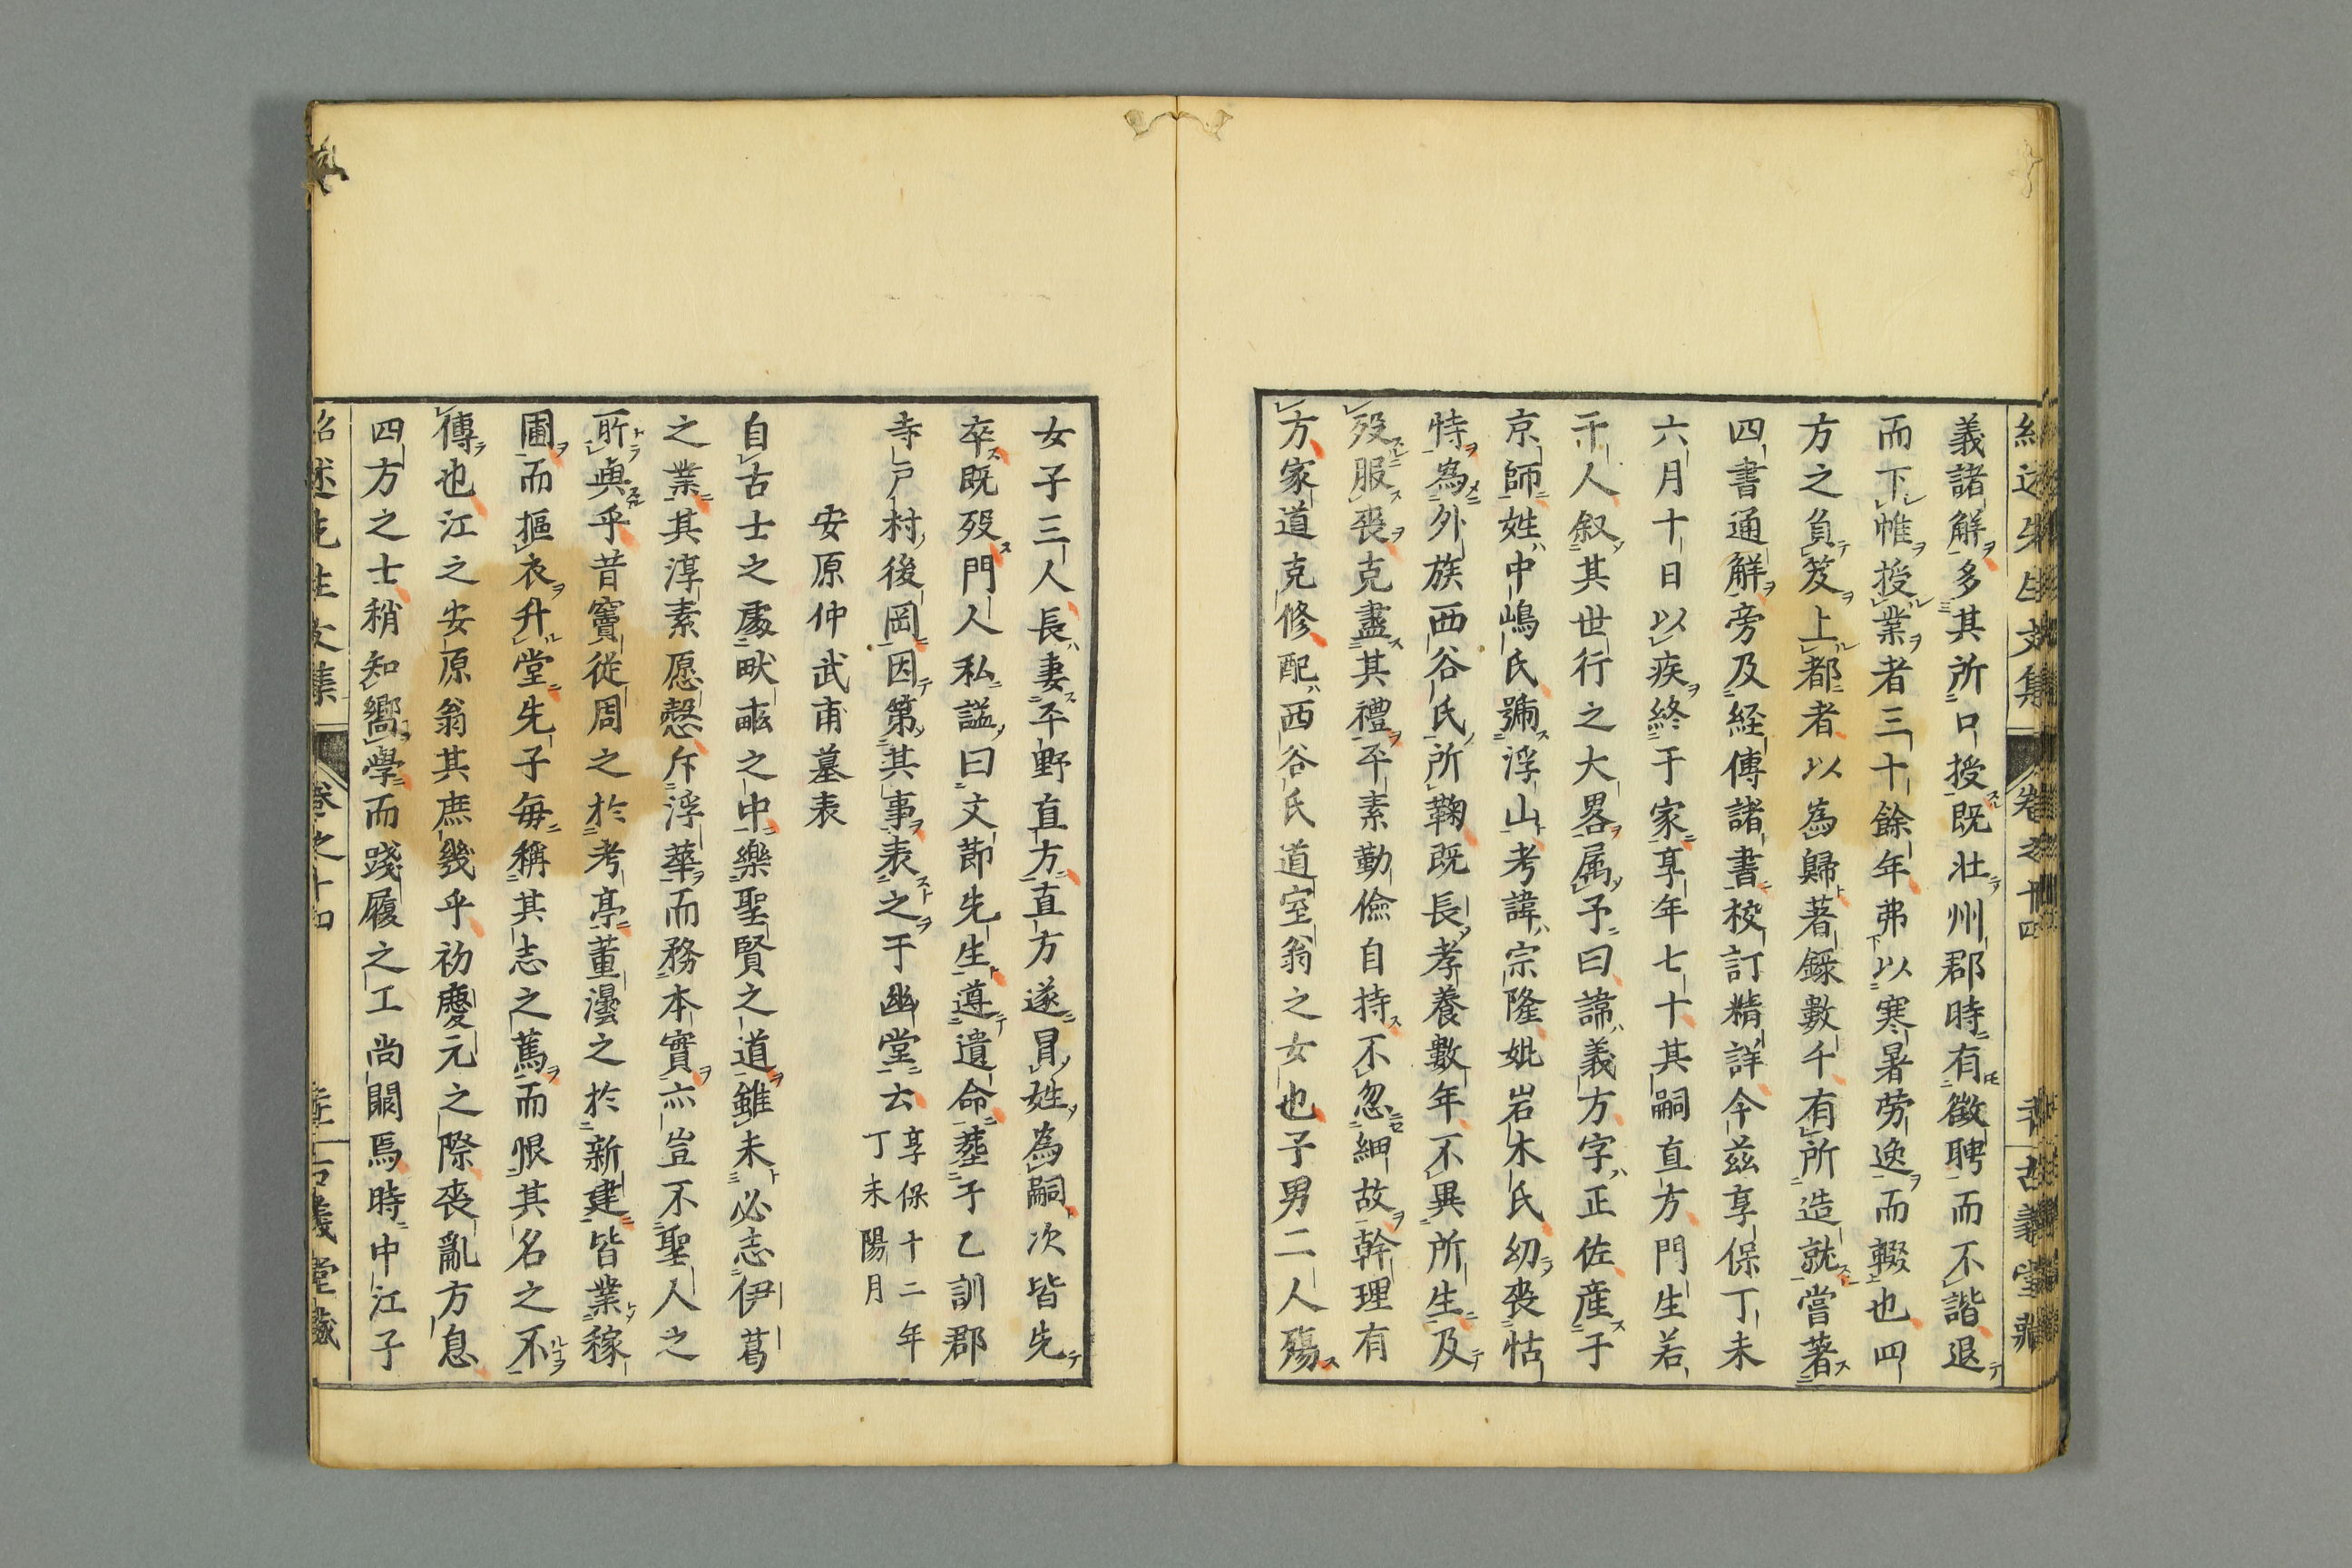 義諸解多其所口授既壮州郡時有徵聘而不諧退
而下帷授業者三十餘年弗以寒暑労逸而輟也四
方之負笈上都者以為歸著錄數千有所造就嘗著
四書通解旁及経傳諸書校訂精詳今茲享保丁未
六月十日以疾終于家享年七十其嗣直方門生若
干人叙其世行之大畧属予曰諱義方字正佐産于
京師姓中嶋氏號浮山考諱宗隆妣岩木氏幼喪怙
恃為外族西谷氏所鞠既長孝養數年不異所生及
歿服喪克盡其禮平素勤儉自持不忽細故幹理有
方家道克修配西谷氏道室翁之女也子男二人殤
女子三人長妻平野直方直方遂冒姓為嗣次皆先
卒既歿門人私謚曰文節先生遵遺命葬于乙訓郡
寺戸村後岡因第其事表之于幽堂云享保十二年
丁未陽月
安原仲武甫墓表
自古士之處畎畝之中樂聖賢之道雖未必志伊葛
之業其淳素愿慤斥浮華而務本實亦豈不聖人之
所與乎昔竇従周之於考亭董澐之於新建皆業稼
圃而摳衣升堂先子毎稱其志之篤而恨其名之不
傳也江之安原翁其庶幾乎初慶元之際喪亂方息
四方之士稍知嚮學而踐履之工尚闕焉時中江子
紹述先生文集 卷之十四 古義堂藏